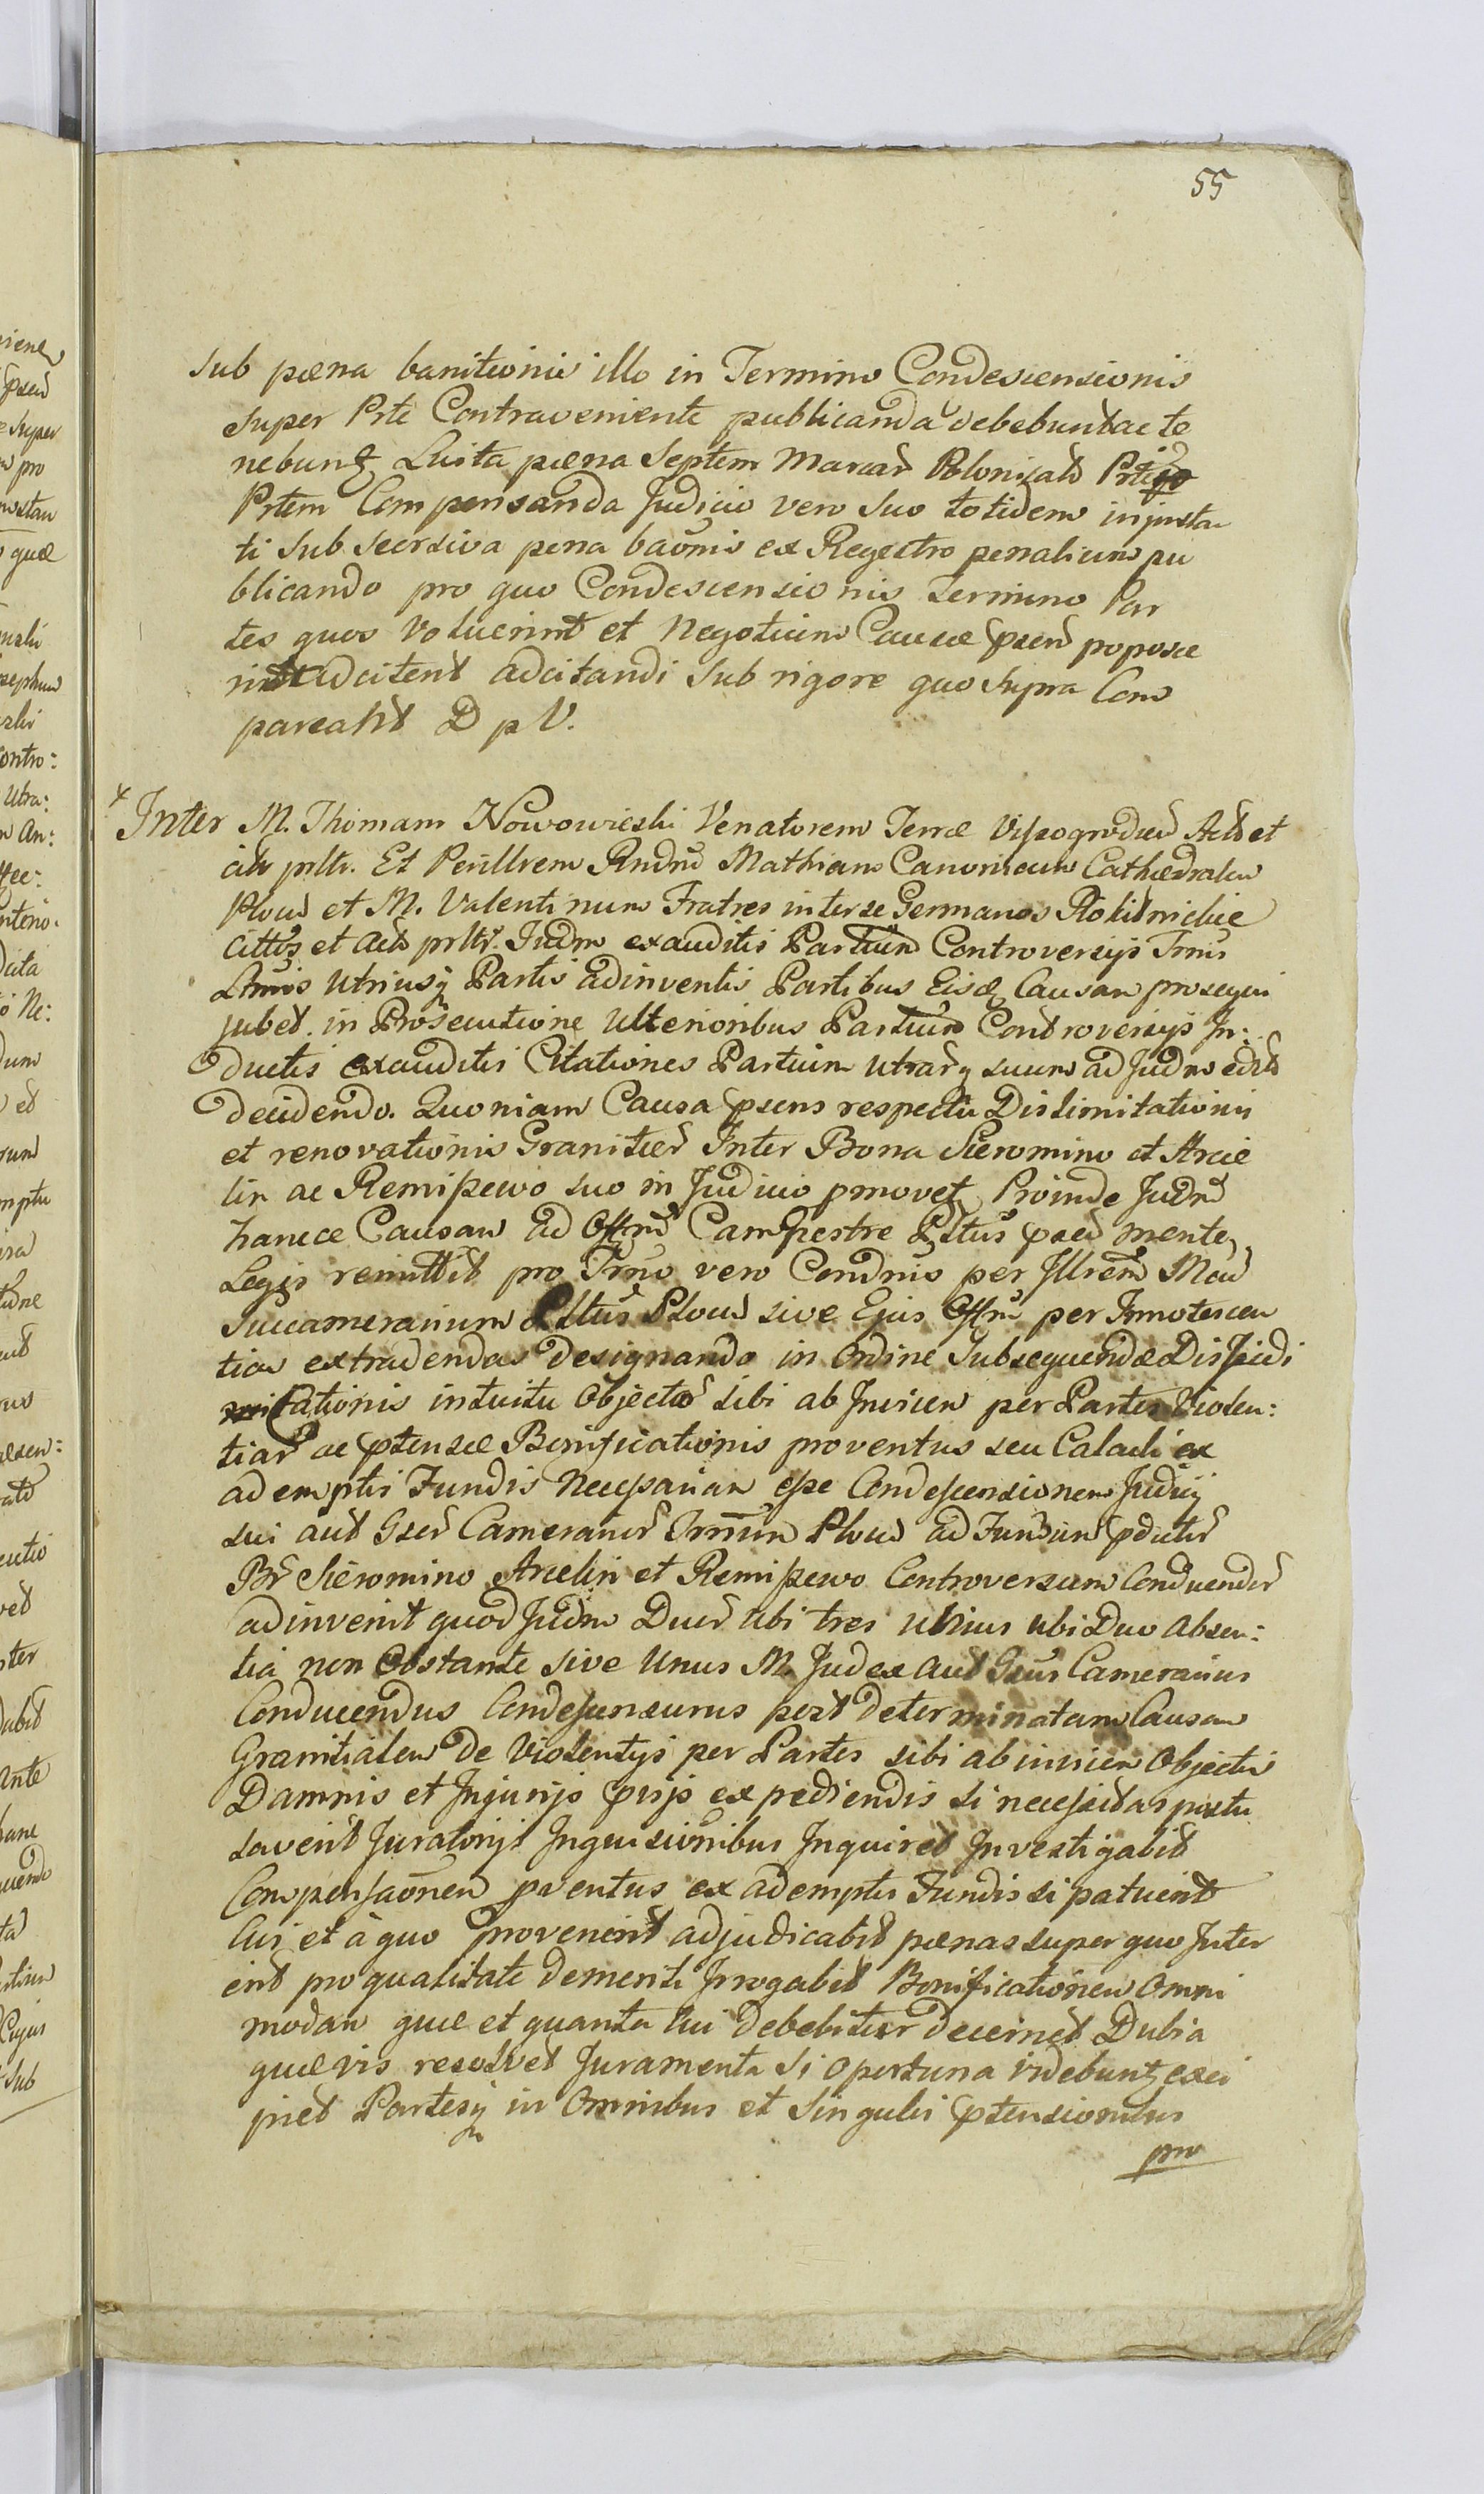 55
Sub pæna banitionis illo in Termino Condescensionis
super Prte Contraveniente publicanda debebunt ac te
nebunt Luita pæna Septem Marcar Polonicalo Prte
Prtem Compensanda Judicio vero Suo totidem injusta
ti Sub Secrsiva pena baonis ex Regestro penalium pu
blicando pro quo Condescensionis Termino Par
tes quos Voluerint et Negotium Causæ psens poposce
rint adcitent adcitandi Sub rigore quo Supra Com
pareant D p V.
Inter M. Thomam Nowowieski Venatorem Terræ Vissogroden Actr et
citt prltr. Et Perillrem Rndm Mathiam Canonicum Cathedralem
Plocen et M. Valentinum Fratres inter se Germanos Rokitnickie
Cittos et Act prltr. Judm exauditis Partium Controversijs Trms
Utriusq Partis adinventis Partibus Eisd Causam prosequi
jubet. in Prosecutione Ulterioribus Partium Controversijs In:
ductis exauditis Citationes Partium utrarq suum ad Judm
decidendo. Quoniam Causa psens respectu Dislimitationis
et renovationis Granitier Inter Bona Sieromino et Arcie
lin ac Remissewo suo in Judicio pmovet Proinde Judm
hancce Causam ad Offm Campestre Plttus psed mente
Legis remittit pro Trmo vero Condnis per Illrem Mcum
Succamerarium Plttus Plocen sive Ejus Offm per Innotescen
tias extradendas designando in Ordine Subsequendæ Disjudi
cationis intuitu Objector Sibi ab Invicem per Partes Violen:
tiar ac ptensæ Bonificationis proventus seu Caladi ex
ademptis Fundis Necessariam esse Condescensionem Judicij
sui aut Gser Camerarior Trrium Plocen ad Fundum pdictor
Br Sieromino Arcelin et Remissewo Controversum Conducendor
adinvenit quod Judm Duor ubi tres Unius ubi Duo absen:
tia non Obstante sive Unus M. Judex aut Gsus Camerarius
Conducendus Condescensurus post determinatam Causam
Granitialem de Violentijs per Partes sibi ab invicem Objectis
Damnis et Injurijs psijs expediendis si necessitas postu
laverit Juratorijs Inquisionibus Inquiret Investigabit
Compensaonem pventus ex ademptis Fundis si patuerit
Cui et à quo provenerit adjudicabit pænas super quo Inter
erit pro qualitate demeriti Irrogabit Bonificationem omni
modam quæ et quanta Cui debebitur decernet Dubia
quævis resolvet Juramenta Si Oportuna videbunt exci
piet Partesq in Omnibus et Singulis ptensionibus
pro